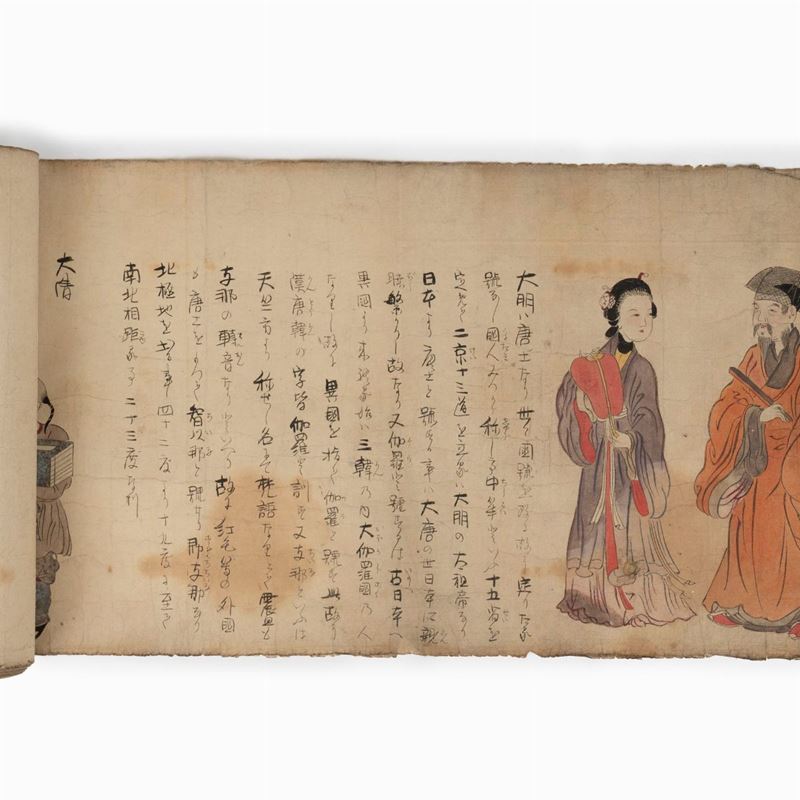 大明ハ唐土なり世々國號を改る故に定りたる
號なし國人みつから称して中華といふ十五省を
定む二京十三道を立るハ大明の太祖帝なり
日本より唐土と號する事ハ大唐の世日本に親
故なり又伽羅と號するは古日本へ
異國より来初る始ハ三韓の内大伽羅國の人
なりし故に異國を指て伽羅と號す此故に
漢唐韓の字皆伽羅と訓す又支那といふは
天竺方より称せし名にて梵語なり
支那の轉音なりといへり故に紅毛等の外國
も唐土をさして智以那と號す即支那なり
北極地を出る事四十二度より十九度に至る
南北相距る事二十三度なり
大清